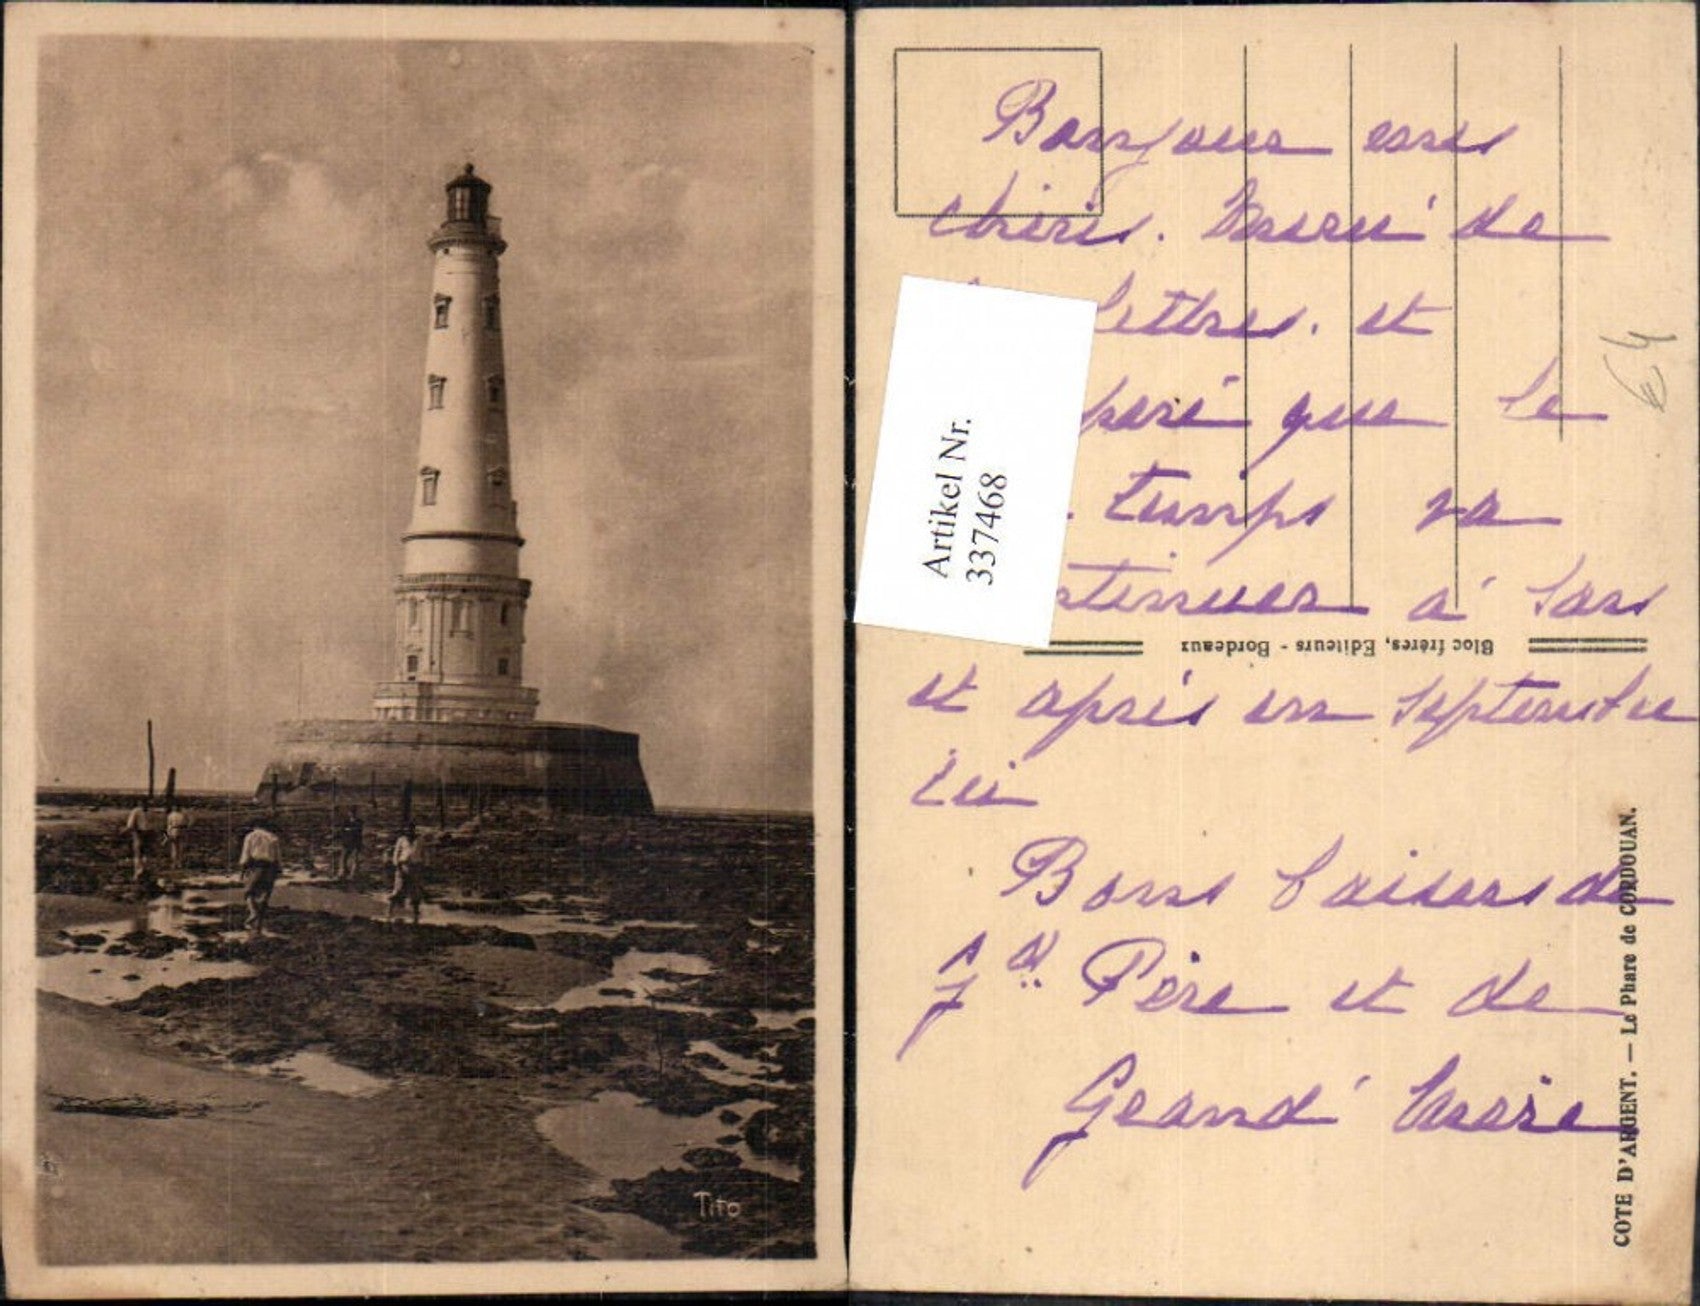 Tito
Bonjour mes
chéris. Merci de
lettres. et
que le
temps va
à
et après en septembre
ici
Bons baisers de
Gd Père et de
Grand' Mère
Artikel Nr.
337468
€4
Bloc frères, Editeurs - Bordeaux
COTE D'ARGENT. — Le Phare de CORDOUAN.